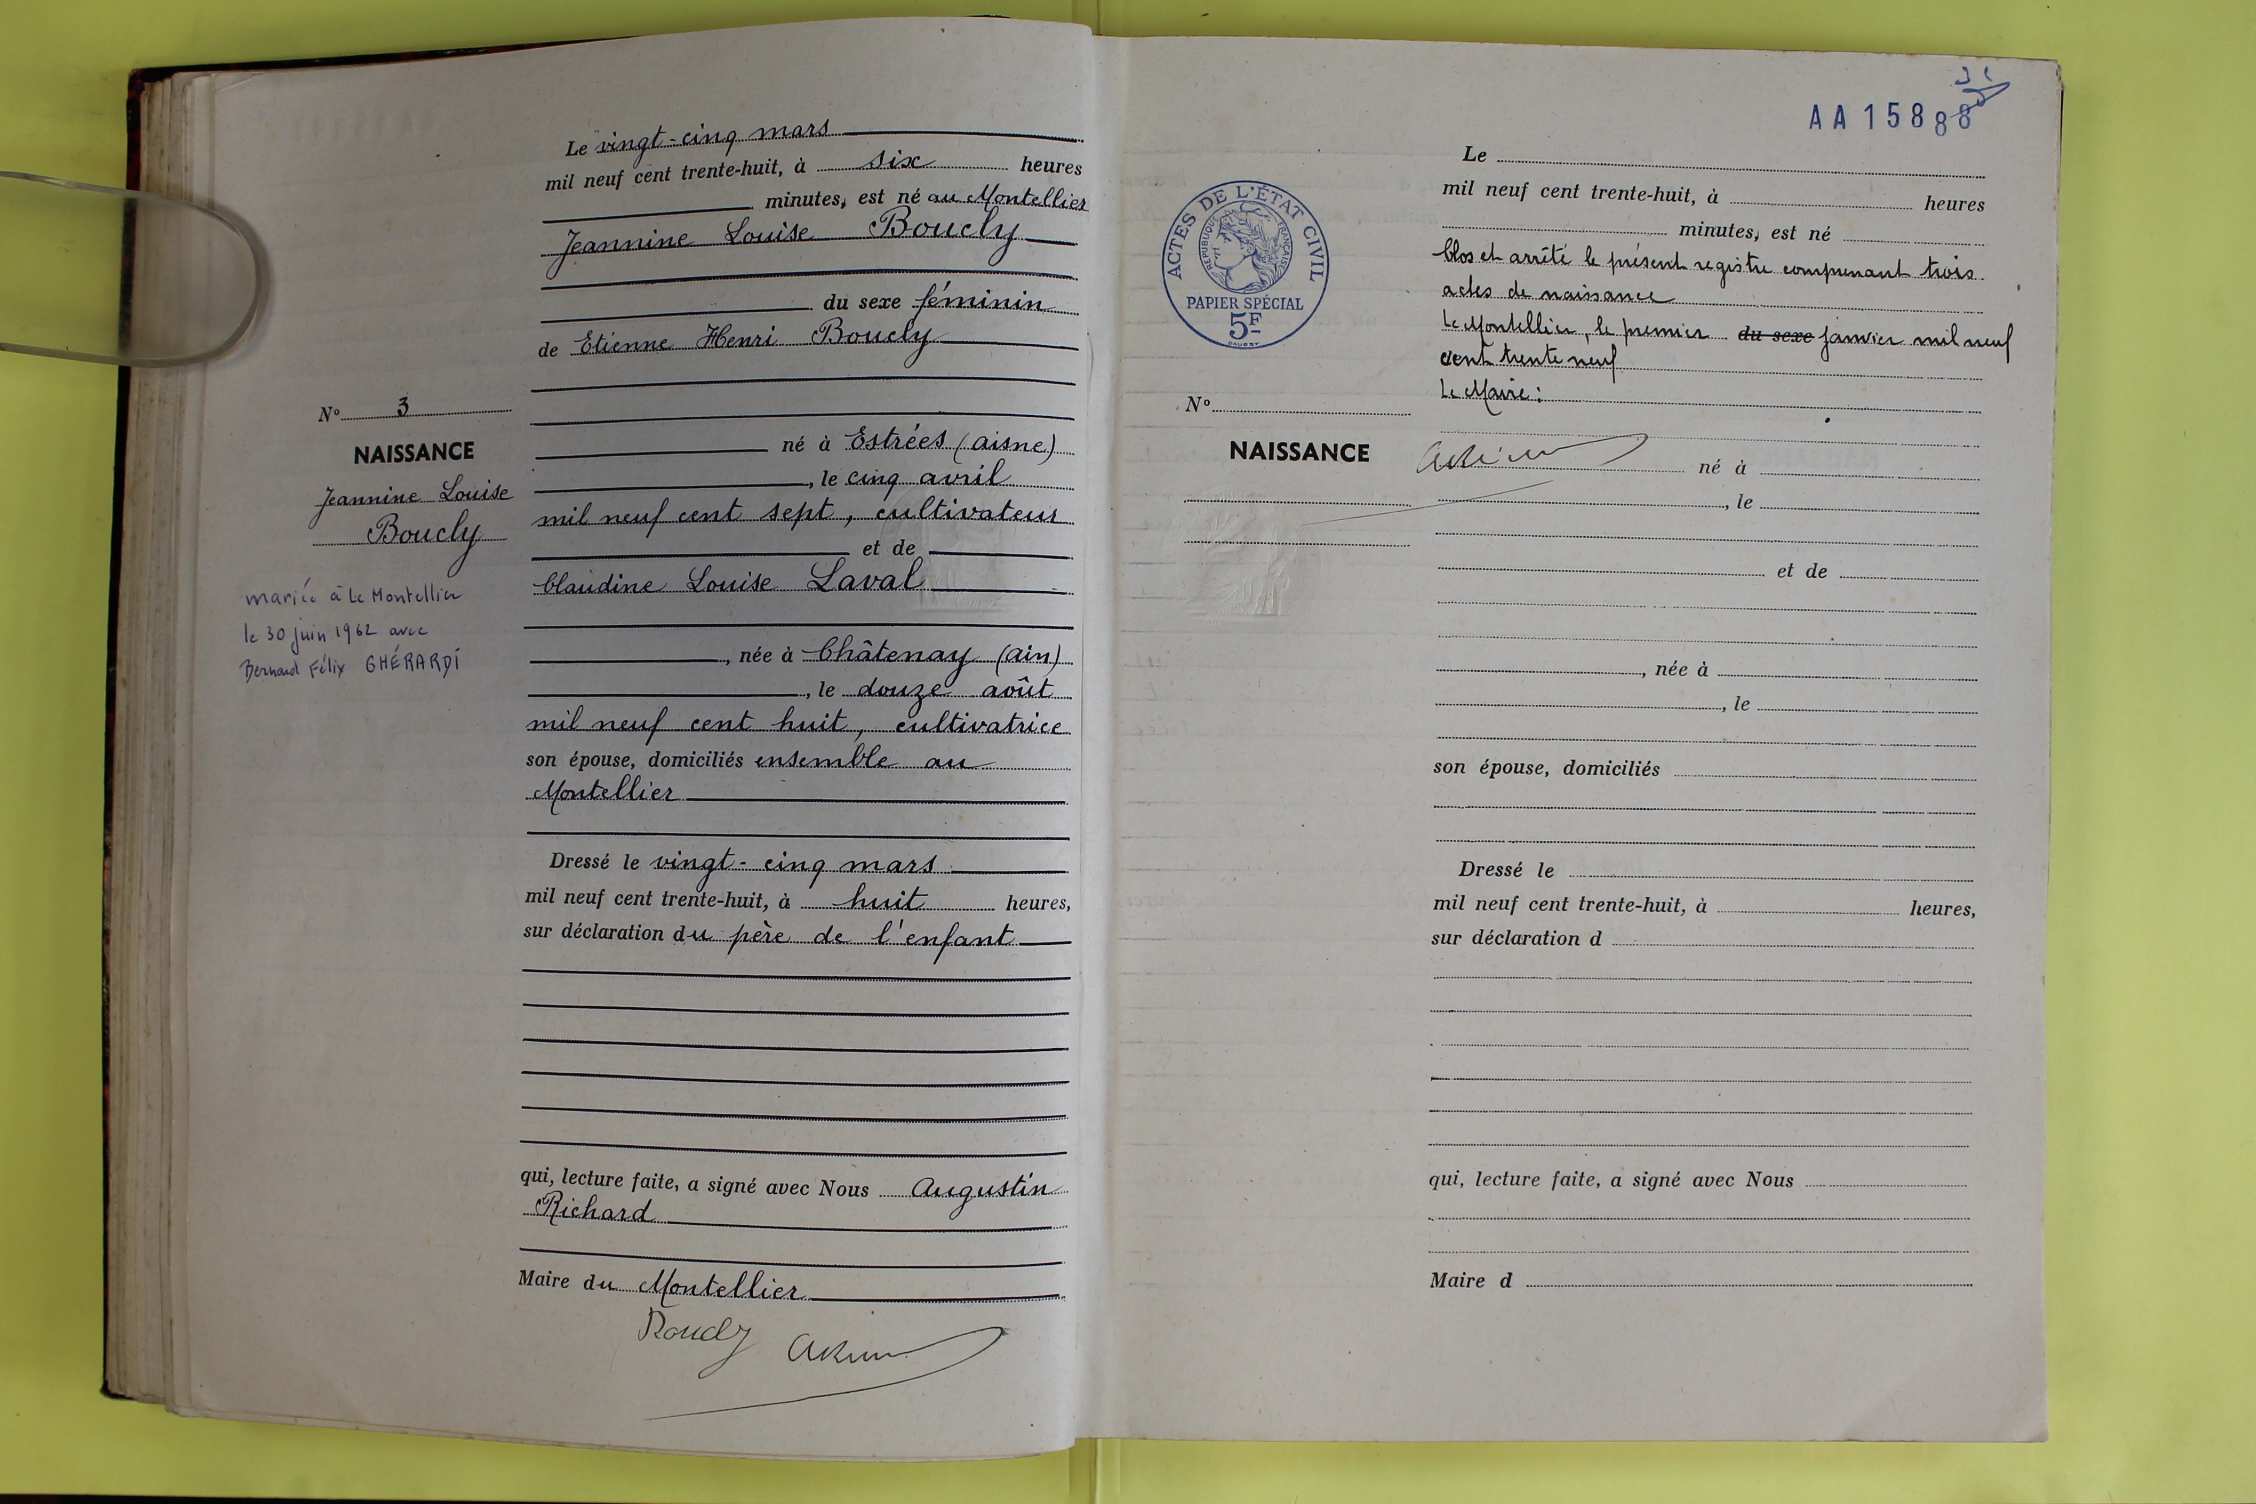 Le vingt-cinq mars
mil neuf cent trente-huit, à six heures
minutes, est né au Montellier
Jeannine Louise Boucly
du sexe féminin
de Etienne Henri Boucly
né à Estrées (aisne)
, le cinq avril
mil neuf cent sept, cultivateur
et de
Claudine Louise Laval
, née à Châtenay (ain)
, le douze août
mil neuf cent huit, cultivatrice
son épouse, domiciliés ensemble au
Montellier
Dressé le vingt-cinq mars
mil neuf cent trente-huit, à huit heures,
sur déclaration du père de l'enfant
qui, lecture faite, a signé avec Nous Augustin
Richard
Maire du Montellier
Boucly
No 3
NAISSANCE
Jeannine Louise
Boucly
mariée à Le Montellier
le 30 juin 1962 avec
Bernard Félix GHÉRARDI
AA 15888
ACTES DE L'ÉTAT CIVIL
RÉPUBLIQUE FRANÇAISE
PAPIER SPÉCIAL
5F
No
NAISSANCE
Le
mil neuf cent trente-huit, à heures
minutes, est né
Clos et arrêté le présent registre comprenant trois
actes de naissance
Le Montellier, le premier du sexe janvier mil neuf
cent trente neuf
Le Maire :
né à
, le
et de
, née à
, le
son épouse, domiciliés
Dressé le
mil neuf cent trente-huit, à heures,
sur déclaration d
qui, lecture faite, a signé avec Nous
Maire d